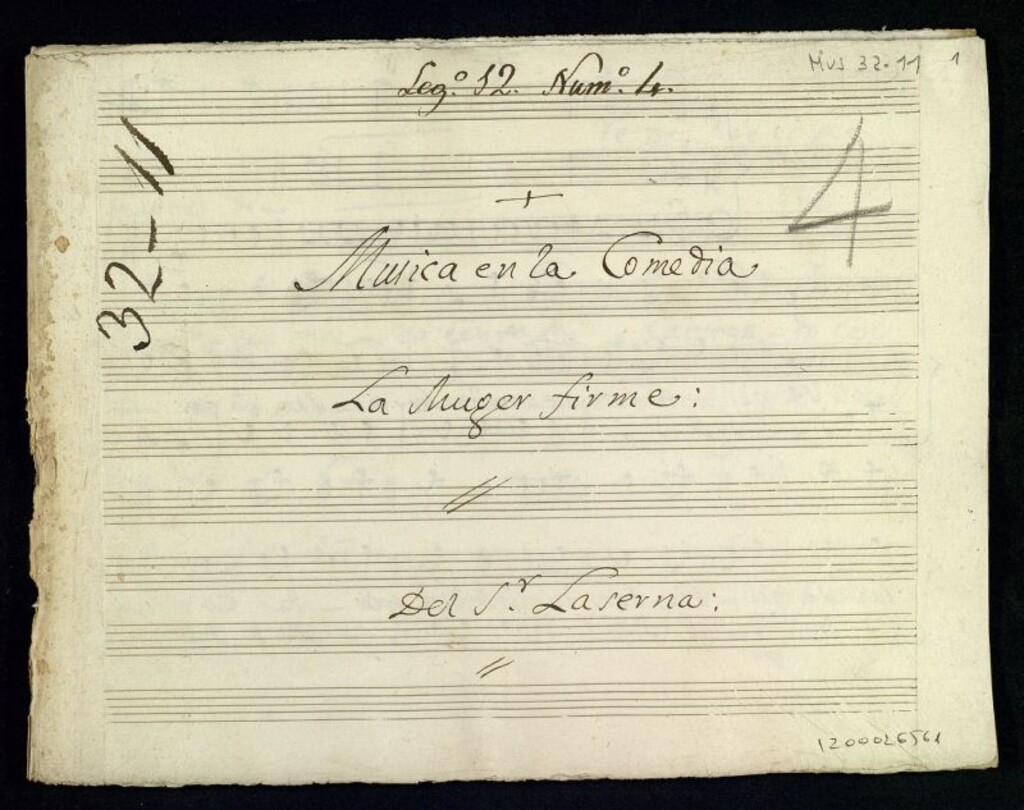 Mus 32-11 1
Leg.º 12. Num.º 4.
32-11
4
+
Musica en la Comedia
La Muger firme:
//
Del S.r Laserna:
//
1200026561